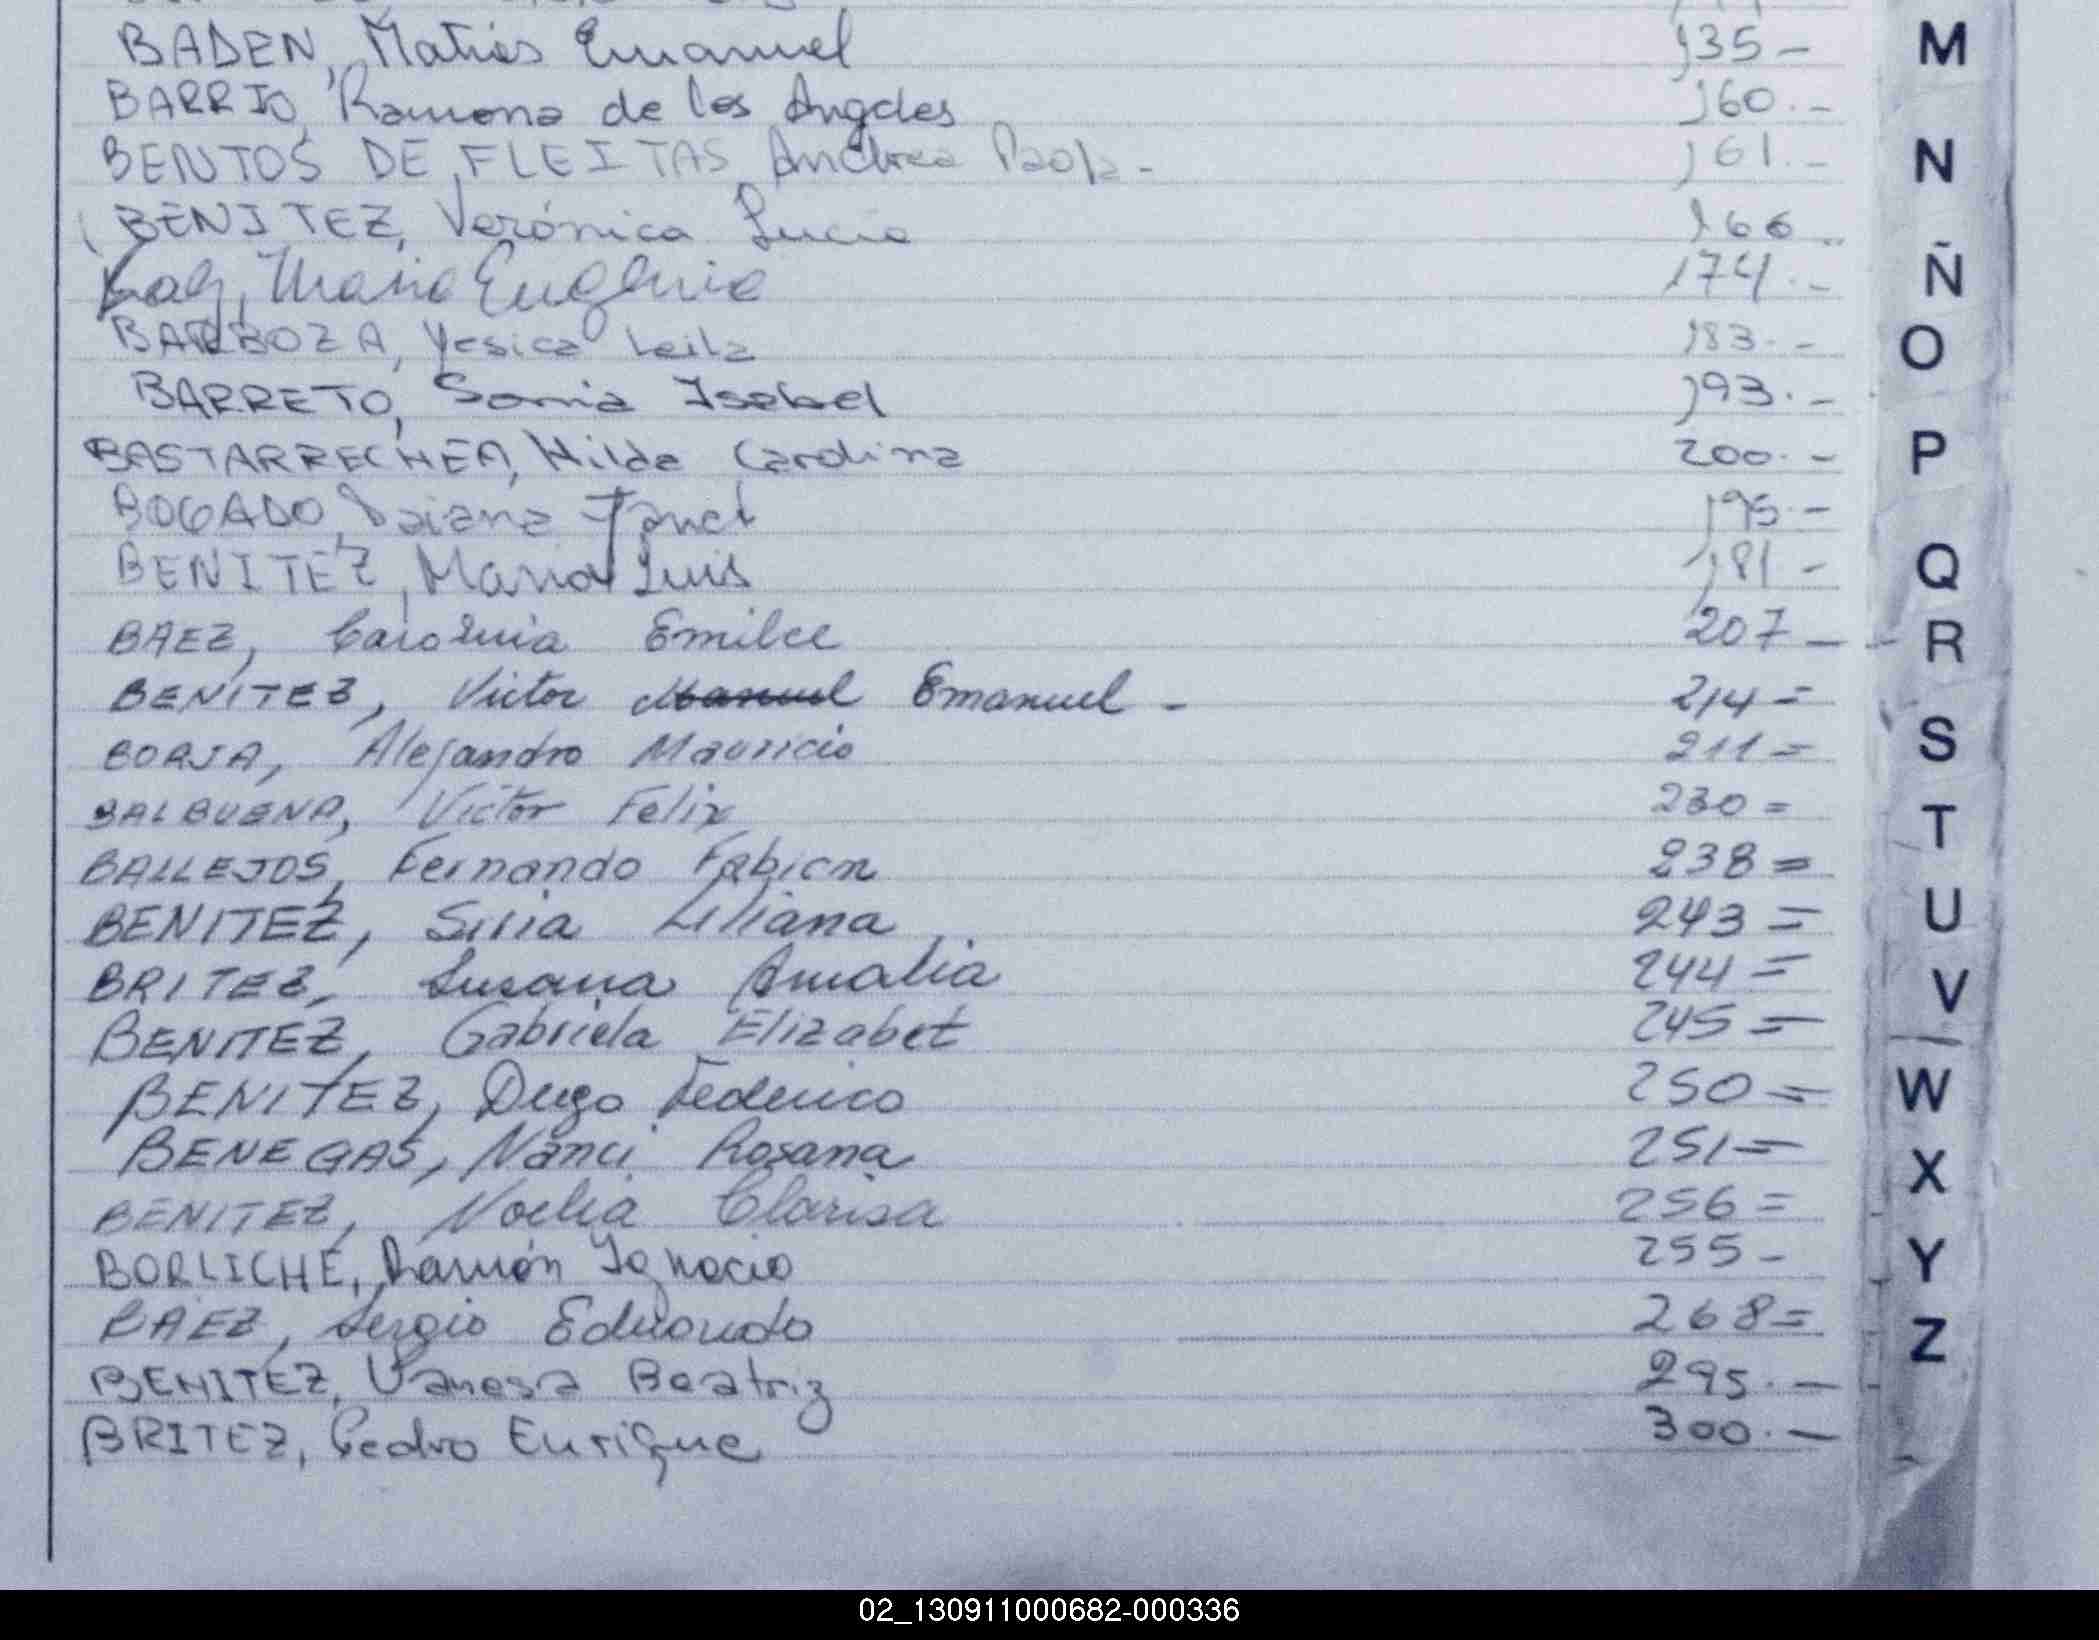 BADEN, Matías Emanuel 135 -
BARRIO, Ramona de los Angeles 160.-
BENTOS DE FLEITAS, Andrea Paola - 161.-
BENITEZ, Verónica Lucia 166
María Eugenia 174.-
BARBOZA, Yesica Leila 183.-
BARRETO, Sonia Isabel 193.-
BASTARRECHEA, Hilda Carolina 200.-
BOGADO, Daiana Janet 195.-
BENITEZ, Mario Luis 181 -
BAEZ, Carolina Emilce 207 -
BENITEZ, Victor Manuel Emanuel - 214 =
BORJA, Alejandro Mauricio 211 =
BALBUENA, Victor Felix 230 =
BALLEJOS, Fernando Fabian 238 =
BENITEZ, Silvia Liliana 243 =
BRITEZ, Susana Amalia 244 =
BENITEZ, Gabriela Elizabet 245 =
BENITEZ, Diego Federico 250 =
BENEGAS, Nanci Rosana 251 =
BENITEZ, Noelia Clarisa 256 =
BORLICHE, Ramón Ignacio 255 -
BAEZ, Sergio Eduardo 268 =
BENITEZ, Vanesa Beatriz 295.-
BRITEZ, Pedro Enrique 300.-
M
N
Ñ
O
P
Q
R
S
T
U
V
W
X
Y
Z
02_130911000682-000336